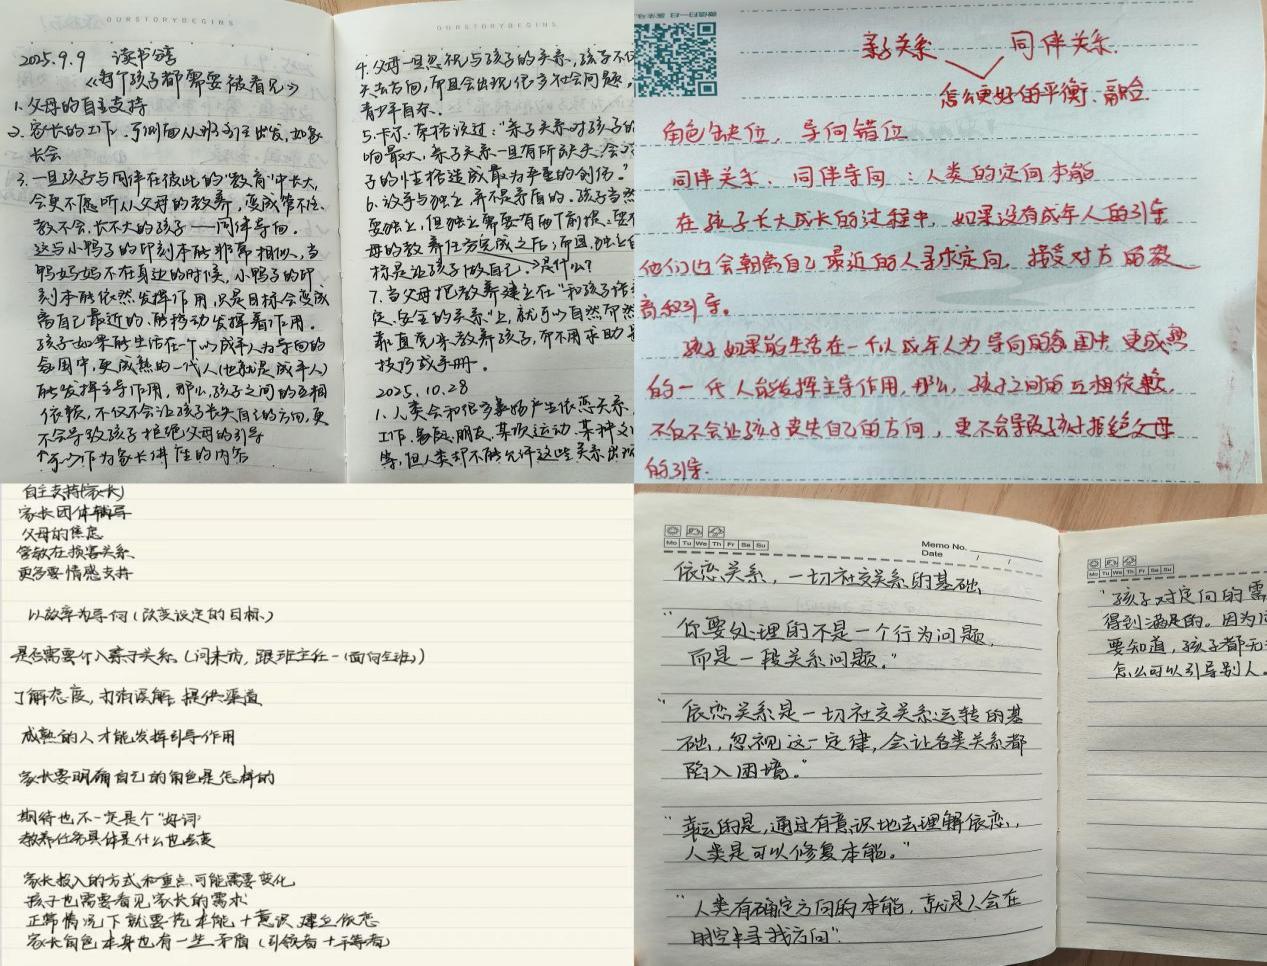 OURSTORYBEGINS
2025.9.9 读书分享
《每个孩子都需要被看见》
1.父母的自主支持
2.家长的工作,可侧面从班主任出发,如家
长会
3.一旦孩子与同伴在彼此的"教育"中长大,
会更不愿听从父母的教养,变成管不住、
教不会、长不大的孩子——同伴导向。
这与小鸭子的印刻本能非常相似,当
鸭妈妈不在身边的时候,小鸭子的印
刻本能依然发挥作用,只是目标会变成
离自己最近的、能移动发挥着作用。
孩子如果能生活在一个以成年人为导向的
氛围中,更成熟的一代人(也就是成年人)
能发挥主导作用,那么,孩子之间的互相
依赖,不仅不会让孩子丧失自己的方向,更
不会导致孩子拒绝父母的引导
可以作为家长讲座的内容
OURSTORYBEGINS
4.父母一旦忽视与孩子的关系,孩子不仅
失去方向,而且会出现很多社会问题,
青少年自杀。
5.卡尔·荣格说过:"亲子关系对孩子的
响最大,亲子关系一旦有所缺失,会对
子的性格造成最为严重的创伤。"
6.放手与独立,并不是矛盾的。孩子当然
要独立,但独立需要有两个前提:要
母的教养任务完成之后;而且,独立
标是让孩子做自己。→是什么?
7.当父母把教养建立在"和孩子
定、安全的关系"上,就可以自然而然
靠直觉来教养孩子,而不用求助
技巧或手册。
2025.10.28
1.人类会和很多事物产生依恋关系,
工作、家庭、朋友、某项运动、某种文
等,但人类却不能允许这些关系出现
亲子关系 同伴关系.
怎么更好的平衡、融合.
角色缺位,导向错位
同伴关系、同伴导向:人类的定向本能
在孩子长大成长的过程中,如果没有成年人的引导
他们也会朝离自己最近的人寻求定向,接受对方的教
育和引导。
孩子如果能生活在一个以成年人为导向的氛围中,更成熟
的一代人能发挥主导作用,那么,孩子之间的互相依赖,
不仅不会让孩子丧失自己的方向,更不会导致孩子拒绝父母
的引导.
自主支持(家长)
家长团体辅导
父母的焦虑
会败在损害关系
更多要情感支持
以效率为导向(改变设定的目标)
是否需要介入亲子关系(问来访,跟班主任-(面向全班))
了解态度,打消误解,提供渠道
成熟的人才能发挥引导作用
家长要明确自己的角色是怎样的
期待也不一定是个"好词"
教养任务具体是什么也会变
家长投入的方式和重点,可能需要变化
孩子也需要看见家长的需求
正常情况下就要凭本能+意识,建立依恋
家长角色本身也有一些矛盾(引领者+平等者)
Memo No.
Mo Tu We Th Fr Sa Su
Date / /
依恋关系,一切社交关系的基础
"你要处理的不是一个行为问题,
而是一段关系问题."
"依恋关系是一切社交关系运转的基
础,忽视这一定律,会让各类关系都
陷入困境."
"幸运的是,通过有意识地去理解依恋,
人类是可以修复本能."
"人类有确定方向的本能,就是人会在
时空中寻找方向".
Mo Tu We Th Fr Sa Su
"孩子对定向的需
得到满足的。因为
要知道,孩子都无
怎么可以引导别人。